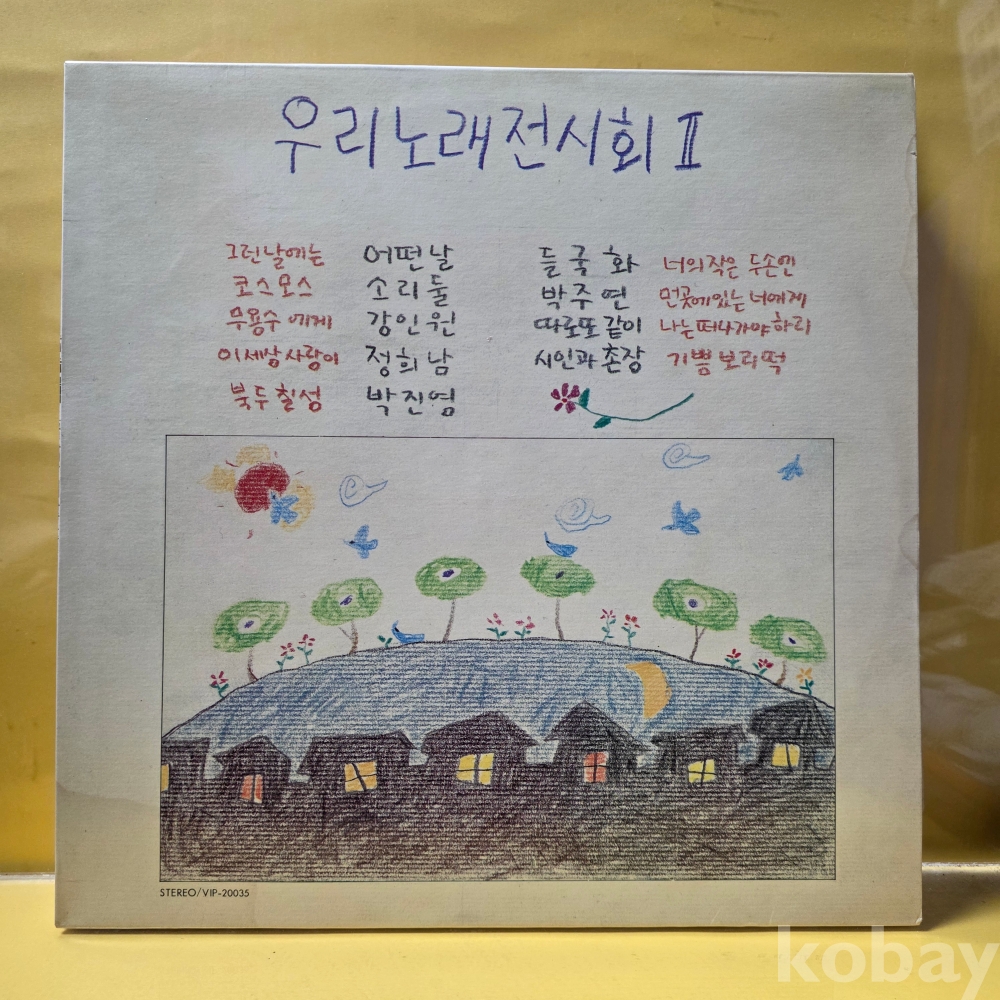 우리노래전시회 Ⅱ
그런날에는 어떤날
코스모스 소리둘
무용수에게 강인원
이세상사랑이 정희남
북두칠성 박진영
들국화 너의작은 두손엔
박주연 먼곳에있는 너에게
따로또같이 나는떠나가야하리
시인과촌장 기쁨보리떡
STEREO/VIP-20035
kobay